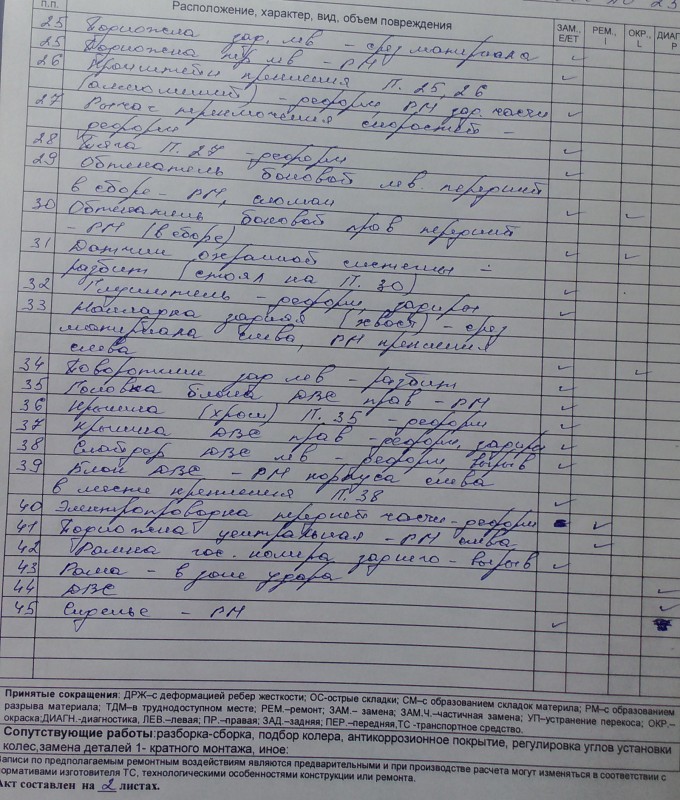 п.п. Расположение, характер, вид, объем повреждения ЗАМ., Е/ЕТ РЕМ., I ОКР., L ДИАГ Р
25 Подножка зад. лев – срез материала
25 Подножка пер лев – РМ
26 Кронштейн крепления П. 25, 26
(алюминий) – деформ РМ зад. части
27 Рычаг переключения скоростей –
деформ
28 Тяга П. 27 – деформ
29 Обтекатель боковой лев. передний
в сборе – РМ, сломан
30 Обтекатель боковой прав передний
– РМ (в сборе)
31 Датчик охранной системы –
разбит (стоял на П. 30)
32 Глушитель – деформ, задиры
33 Накладка задняя (хвост) – срез
материала слева, РМ крепления
слева
34 Поворотник зад лев – разбит
35 Головка блока ДВС прав – РМ
36 Крышка (хром) П. 35 – деформ
37 Крышка ДВС прав – деформ, задиры
38 Слайдер ДВС лев – деформ вырыв
39 Блок ДВС – РМ корпуса слева
в месте крепления П 38
40 Электропроводка передней части – деформ
41 Подножка центральная – РМ слева
42 Рамка гос. номера заднего – вырыв
43 Рама – в зоне удара
44 ДВС
45 Сиденье – РМ
Принятые сокращения: ДРЖ–с деформацией ребер жесткости; ОС-острые складки; СМ–с образованием складок материла; РМ–с образованием
разрыва материала; ТДМ–в труднодоступном месте; РЕМ.–ремонт; ЗАМ.– замена; ЗАМ.Ч.–частичная замена; УП–устранение перекоса; ОКР.–
окраска;ДИАГН.-диагностика, ЛЕВ.–левая; ПР.–правая; ЗАД.–задняя; ПЕР.–передняя,ТС -транспортное средство.
Сопутствующие работы:разборка-сборка, подбор колера, антикоррозионное покрытие, регулировка углов установки
колес,замена деталей 1- кратного монтажа, иное:
Записи по предполагаемым ремонтным воздействиям являются предварительными и при производстве расчета могут изменяться в соответствии с
нормативами изготовителя ТС, технологическими особенностями конструкции или ремонта.
Акт составлен на 2 листах.